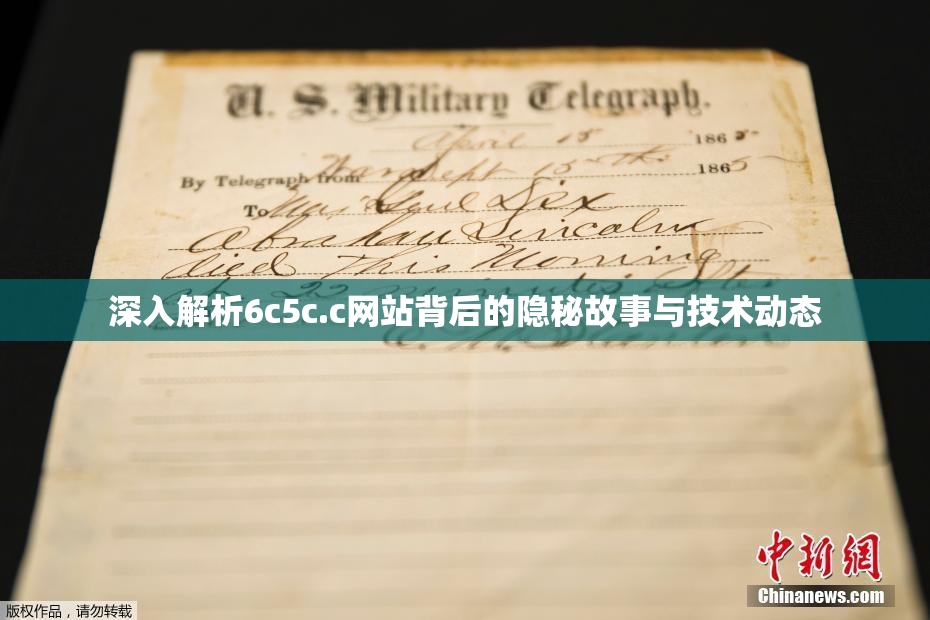 U. S. Military Telegraph.
April 15 1865
By Telegraph from War Dept 15th 1865
To Maj Genl Dix
Abraham Lincoln
died This Morning
22 minutes after
深入解析6c5c.c网站背后的隐秘故事与技术动态
E. M. Stanton
中新网
Chinanews.com
版权作品,请勿转载